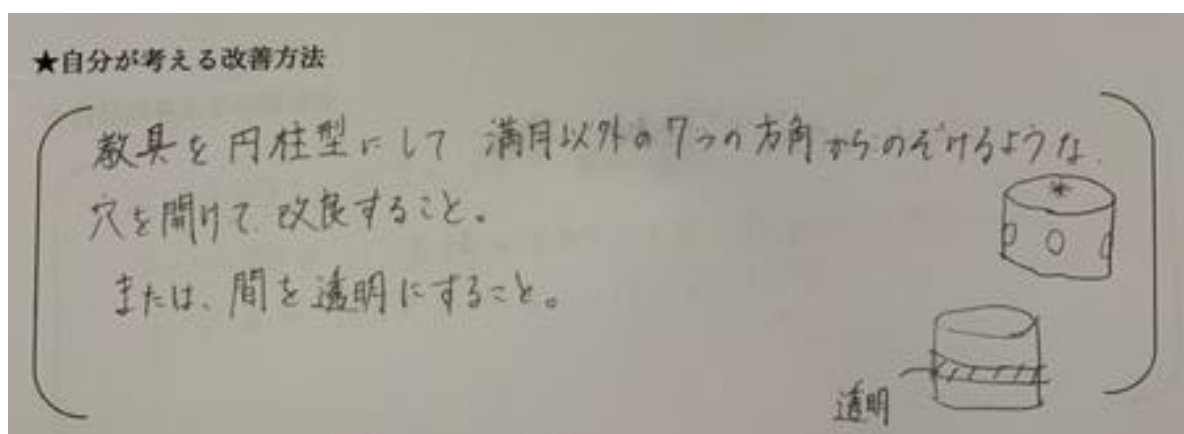 ★自分が考える改善方法
教具を円柱型にして満月以外の7つの方角からのぞけるような
穴を開けて改良すること。
または、間を透明にすること。
透明